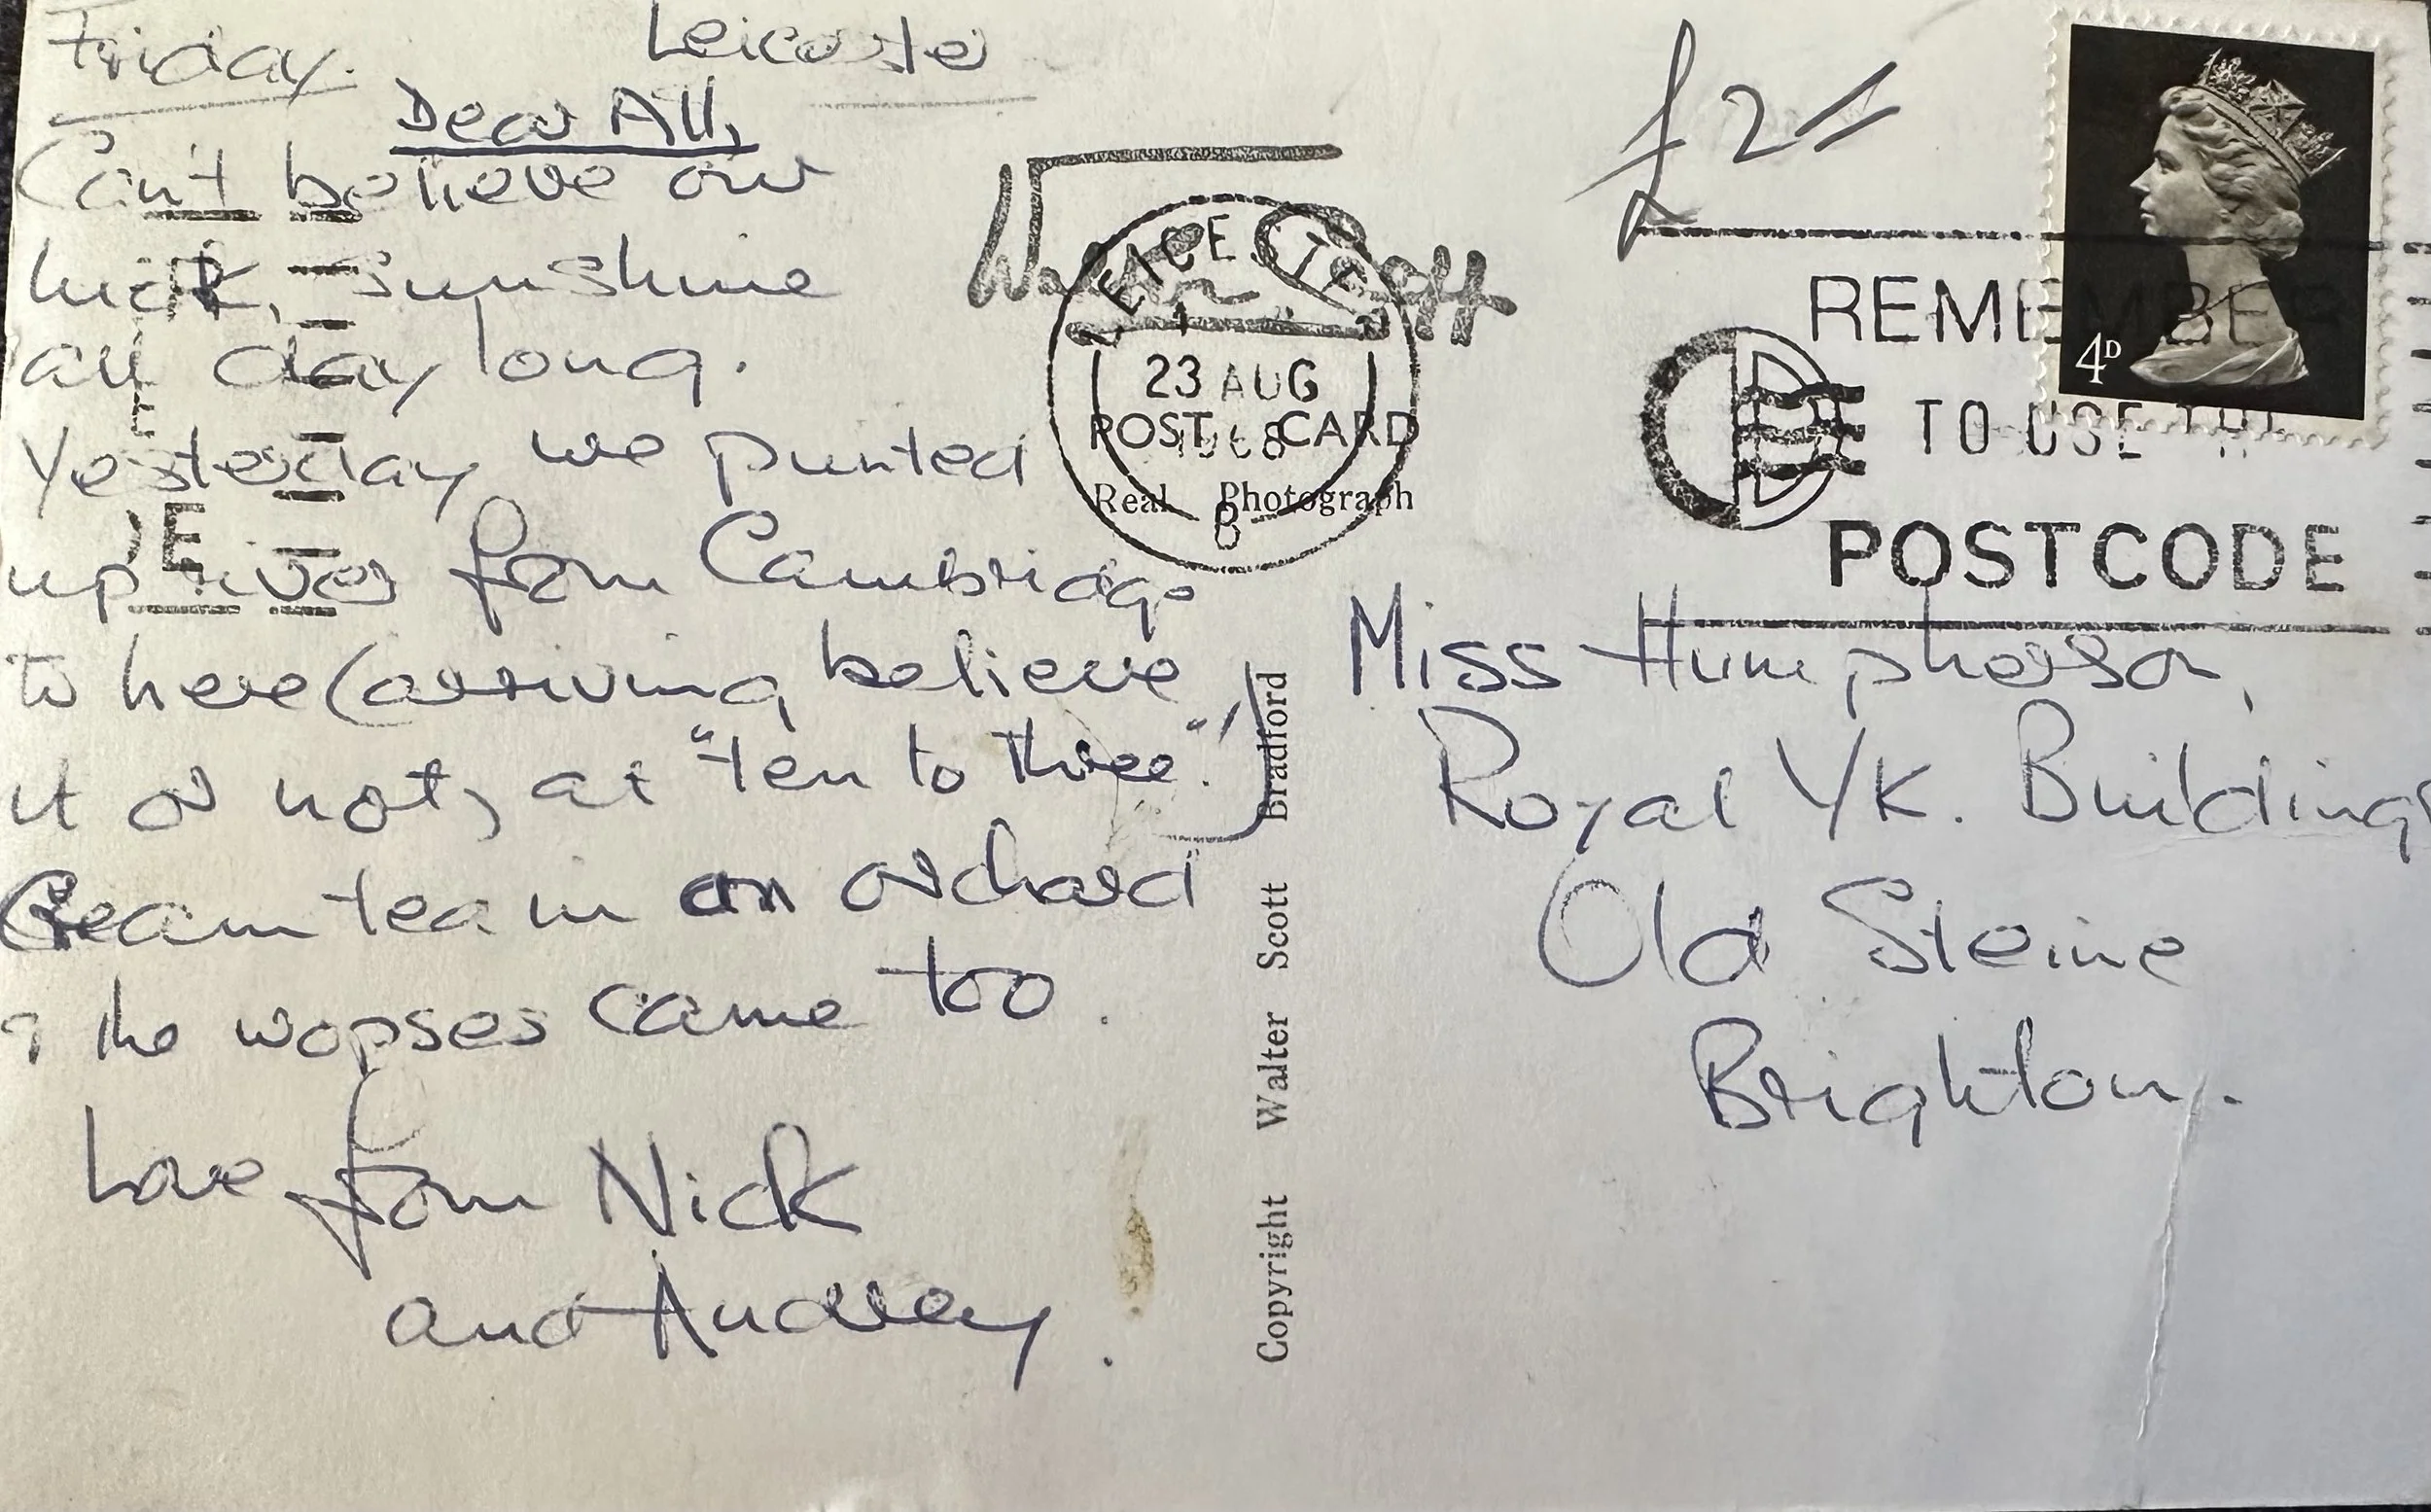 Friday. Leicester
Dear All,
Can't believe our
luck, sunshine
all day long.
Yesterday we punted
up river from Cambridge
to here (arriving believe
it or not, at "ten to three".!)
Cream tea in an orchard
& the wopses came too.
Love from Nick
and Audrey.
Walter Scott
LEICESTER
23 AUG
1968
8
POST CARD
Real Photograph
Copyright Walter Scott Bradford
£2/
4D
REMEMBER
TO USE THE
POSTCODE
Miss Humpherson,
Royal Yk. Buildings
Old Steine
Brighton.